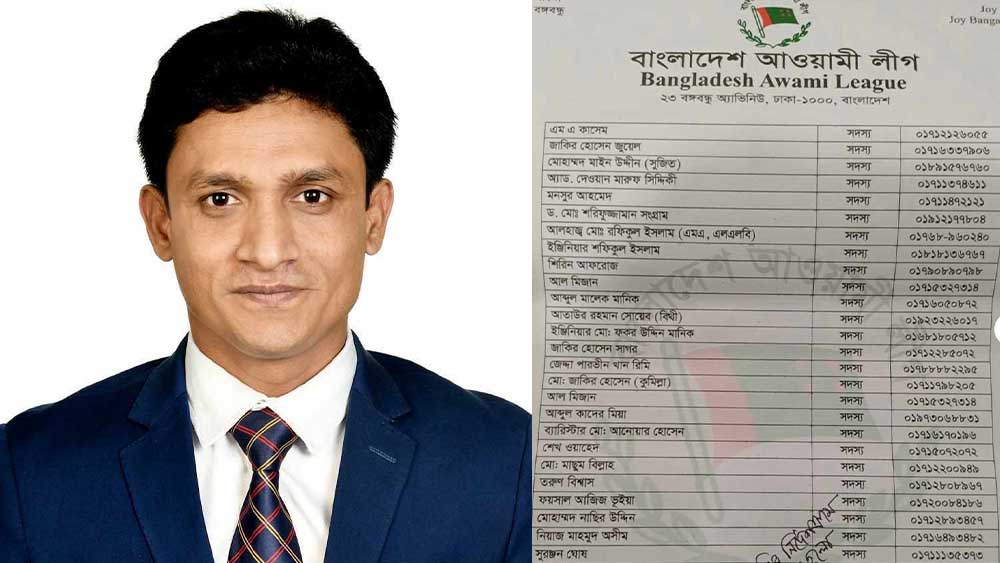 বঙ্গবন্ধু
Joy
Joy Banga
বাংলাদেশ আওয়ামী লীগ
Bangladesh Awami League
২৩ বঙ্গবন্ধু অ্যাভিনিউ, ঢাকা-১০০০, বাংলাদেশ
এম এ কাসেম সদস্য ০১৭১২১২৬০৫৫
জাকির হোসেন জুয়েল সদস্য ০১৭১৬৩৩৭৯০৬
মোহাম্মদ মাইন উদ্দীন (সুজিত) সদস্য ০১৮৯১৫৭৬৭৬০
অ্যাড. দেওয়ান মারুফ সিদ্দিকী সদস্য ০১৭১১৩৭৪৬১১
মনসুর আহমেদ সদস্য ০১৭১১৪৭২১২১
ড. মোঃ শরিফুজ্জামান সংগ্রাম সদস্য ০১৯১২১৭৭৮০৪
আলহাজ্ব মোঃ রফিকুল ইসলাম (এমএ, এলএলবি) সদস্য ০১৭৬৮-৯৬০২৪০
ইঞ্জিনিয়ার শফিকুল ইসলাম সদস্য ০১৮১৮১৩৬৭৬৭
শিরিন আফরোজ সদস্য ০১৭৯০৮৯০৭৯৮
আল মিজান সদস্য ০১৭১৫৩২৭৩১৪
আব্দুল মালেক মানিক সদস্য ০১৭১৬০৫০৮৭২
আতাউর রহমান সোয়েব (বিথী) সদস্য ০১৯২৩২২৬০১৭
ইঞ্জিনিয়ার মো: ফকর উদ্দিন মানিক সদস্য ০১৬৮১৮০৫৭১২
জাকির হোসেন সাগর সদস্য ০১৭১২২৮৫০৭২
জেদ্দা পারভীন খান রিমি সদস্য ০১৭৮৮৮৮২২৯৫
মো: জাকির হোসেন (কুমিল্লা) সদস্য ০১৭১১৭৯৮২০৫
আল মিজান সদস্য ০১৭১৫৩২৭৩১৪
আব্দুল কাদের মিয়া সদস্য ০১৯৭৩০৬৮৮৩১
ব্যারিস্টার মো: আনোয়ার হোসেন সদস্য ০১৭১৬১৭০১৯৬
শেখ ওয়াহেদ সদস্য ০১৭১৫০৭২০৭২
মো: মাছুম বিল্লাহ সদস্য ০১৭১২২০০৯৪৯
তরুণ বিশ্বাস সদস্য ০১৭১২৮০৮৯৬৭
ফয়সাল আজিজ ভূইয়া সদস্য ০১৭২০০৮৪১৮৬
মোহাম্মদ নাছির উদ্দিন সদস্য ০১৭১২৮৯৩৪৫৭
নিয়াজ মাহমুদ অসীম সদস্য ০১৭১৬৪৯৩৪৮২
সুরঞ্জন ঘোষ সদস্য ০১৭১১১৩৫৩৭৩